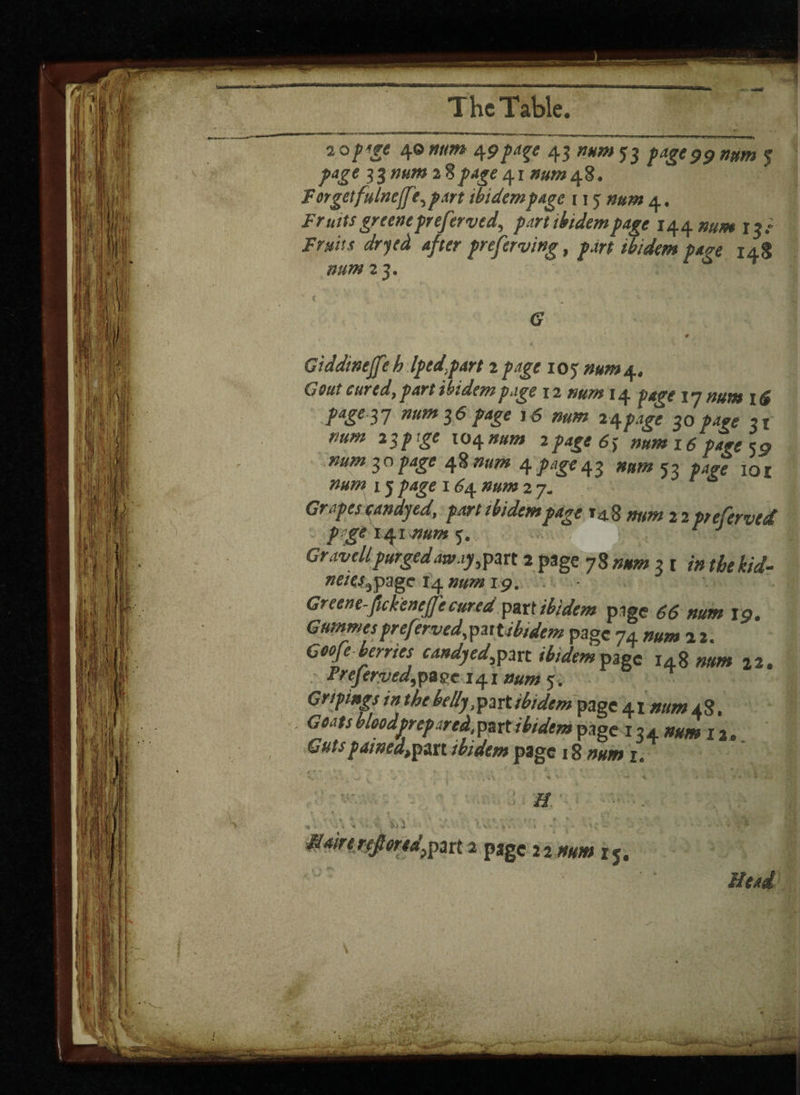 The Table.
20 page 40 num 49 page 43 num 53 page 99 num 5
page 33 num 28 page 41 num 48.
Forgetfulnesse, part ibidem page 115 num 4.
Fruits greene preserved, part ibidem page 144 num 13.
Fruits dryed after preserving, part ibidem page 148
num 23.
G
Giddinesse h lped, part 2 page 105 num 4.
Gout cured, part ibidem page 12 num 14 page 17 num 16
page 37 num 36 page 16 num 24 page 30 page 31
num 23 page 104 num 2 page 65 num 16 page 59
num 30 page 48 num 4 page 43 num 53 page 101
num 15 page 164 num 27.
Grapes candyed, part ibidem page 148 num 22 preserved
page 141 num 5.
Gravell purged away, part 2 page 78 num 31 in the kid-
neies, page 14 num 19.
Greene-sickenesse cured part ibidem page 66 num 19.
Gummes preserved, part ibidem page 74 num 22.
Goose-berries candyed, part ibidem page 148 num 22.
Preserved, page 141 num 5.
Gripings in the belly, part ibidem page 41 num 48.
Goats blood prepared, part ibidem page 134 num 12.
Guts pained, part ibidem page 18 num 1.
H
Haire restored, part 2 page 22 num 15.
Head